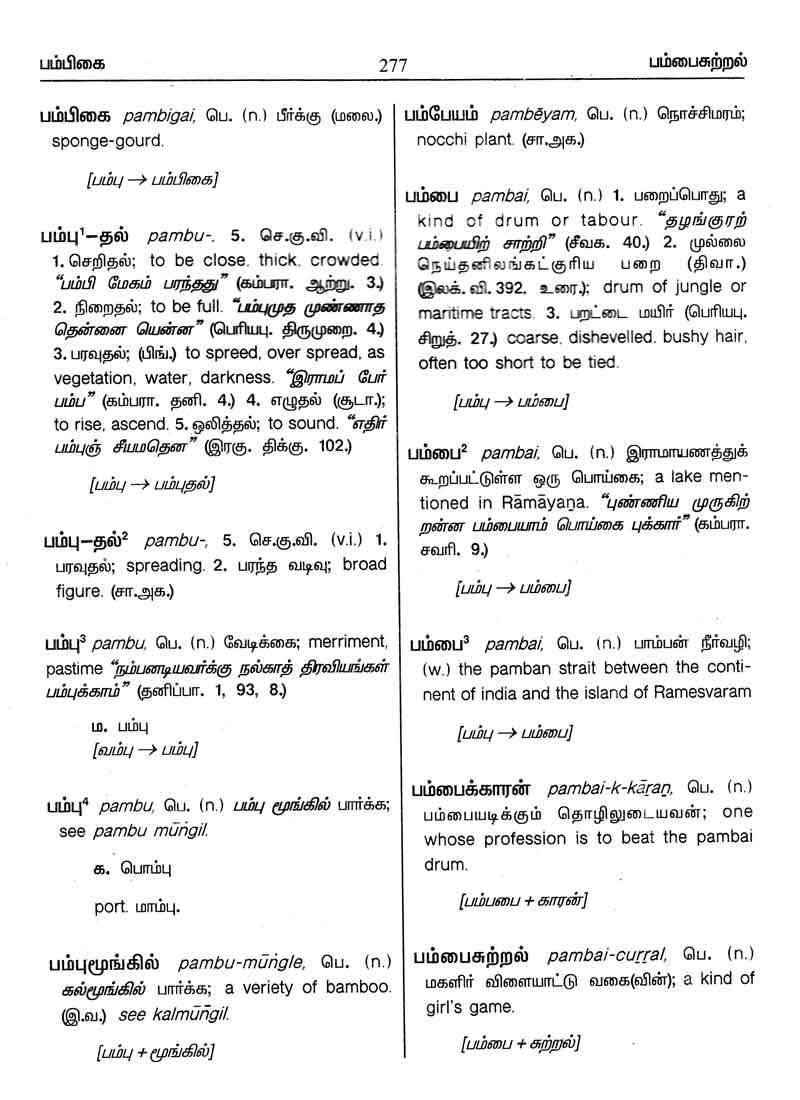 பம்பிகை
277
பம்பைசுற்றல்
பம்பிகை pambigai, பெ. (n.) பீர்க்கு (மலை.)
sponge-gourd.
[பம்பு → பம்பிகை]
பம்பு¹–தல் pambu-, 5. செ.கு.வி. (v.i.)
1. செறிதல்; to be close, thick, crowded.
“பம்பி மேகம் பரந்தது” (கம்பரா. ஆற்று. 3.)
2. நிறைதல்; to be full. “பம்புமுத முண்ணாத
தென்னை யென்ன” (பெரியபு. திருமுறை. 4.)
3. பரவுதல்; (பிங்.) to spreed, over spread, as
vegetation, water, darkness. “இராமப் பேர்
பம்ப” (கம்பரா. தனி. 4.) 4. எழுதல் (சூடா.);
to rise, ascend. 5. ஒலித்தல்; to sound. “எதிர்
பம்புஞ் சீயமதென” (இரகு. திக்கு. 102.)
[பம்பு → பம்புதல்]
பம்பு–தல்² pambu-, 5. செ.கு.வி. (v.i.) 1.
பரவுதல்; spreading. 2. பரந்த வடிவு; broad
figure. (சா.அக.)
பம்பு³ pambu, பெ. (n.) வேடிக்கை; merriment,
pastime “நம்பனடியவர்க்கு நல்காத் திரவியங்கள்
பம்புக்காம்” (தனிப்பா. 1, 93, 8.)
ம. பம்பு
[வம்பு → பம்பு]
பம்பு⁴ pambu, பெ. (n.) பம்பு மூங்கில் பார்க்க;
see pambu mūṅgil.
க. பொம்பு
port. மாம்பு.
பம்புமூங்கில் pambu-mūṅgle, பெ. (n.)
கல்மூங்கில் பார்க்க; a veriety of bamboo.
(இ.வ.) see kalmūṅgil.
[பம்பு + மூங்கில்]
பம்பேயம் pambēyam, பெ. (n.) நொச்சிமரம்;
nocchi plant. (சா.அக.)
பம்பை pambai, பெ. (n.) 1. பறைப்பொது; a
kind of drum or tabour. “தழங்குரற்
பம்பையிற் சாற்றி” (சீவக. 40.) 2. முல்லை
நெய்தனிலங்கட்குரிய பறை (திவா.)
(இலக். வி. 392. உரை.); drum of jungle or
maritime tracts. 3. பறட்டை மயிர் (பெரியபு.
சிறுத். 27.) coarse, dishevelled, bushy hair,
often too short to be tied.
[பம்பு → பம்பை]
பம்பை² pambai, பெ. (n.) இராமாயணத்துக்
கூறப்பட்டுள்ள ஒரு பொய்கை; a lake men-
tioned in Rāmāyaṇa. “புண்ணிய முருகிற்
றன்ன பம்பையாம் பொய்கை புக்கார்” (கம்பரா.
சவரி. 9.)
[பம்பு → பம்பை]
பம்பை³ pambai, பெ. (n.) பாம்பன் நீர்வழி;
(w.) the pamban strait between the conti-
nent of india and the island of Ramesvaram
[பம்பு → பம்பை]
பம்பைக்காரன் pambai-k-kāṟaṉ, பெ. (n.)
பம்பையடிக்கும் தொழிலுடையவன்; one
whose profession is to beat the pambai
drum.
[பம்பபை + காரன்]
பம்பைசுற்றல் pambai-cuṟṟal, பெ. (n.)
மகளிர் விளையாட்டு வகை(வின்); a kind of
girl's game.
[பம்பை + சுற்றல்]